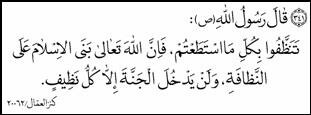 (٣٤١) قَالَ رَسُولُ اللهِ (ص):
تَنَظَّفُوا بِكُلِّ مَا اسْتَطَعْتُمْ، فَإِنَّ اللهَ تَعَالىٰ بَنَى الإِسْلامَ عَلَى
النَّظَافَةِ، وَلَنْ يَدْخُلَ الْجَنَّةَ إِلاّ كُلُّ نَظِيفٍ.
كنز العمّال/٢٦٠٠٢